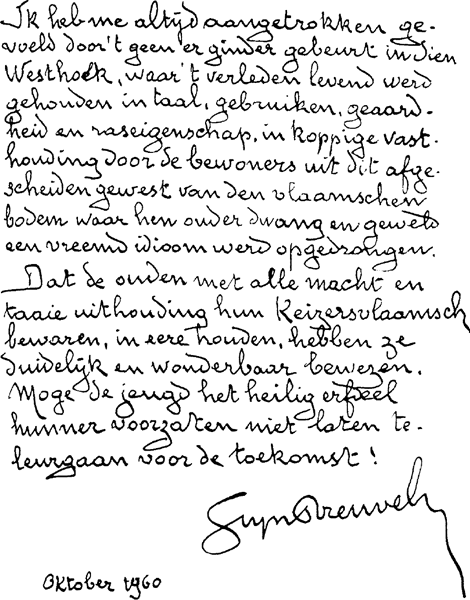 Ik heb me altijd aangetrokken ge-
voeld door 't geen er ginder gebeurt in dien
Westhoek, waar 't verleden levend werd
gehouden in taal, gebruiken, geaard-
heid en raseigenschap, in koppige vast-
houding door de bewoners uit dit afge-
scheiden gewest van den vlaamschen
bodem waar hen onder dwang en geweld
een vreemd idioom werd opgedrongen.
Dat de ouden met alle macht en
taaie uithouding hun Keizersvlaamsch
bewaren, in eere houden, hebben ze
duidelijk en wonderbaar bewezen.
Moge de jeugd het heilig erfdeel
hunner voorzaten niet laten te-
leurgaan voor de toekomst !
Stijn Streuvels
Oktober 1960